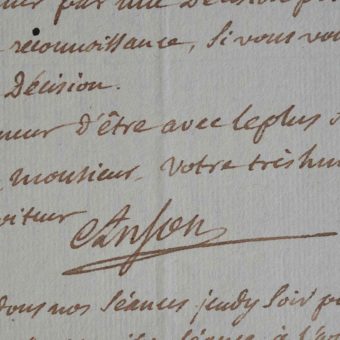 par une Décision
reconnoissance, si vous vou
Décision.
neur d'être avec le plus
monsieur, Votre très hum
viteur
Anson
dons nos séances jeudy soir p
séance à l'